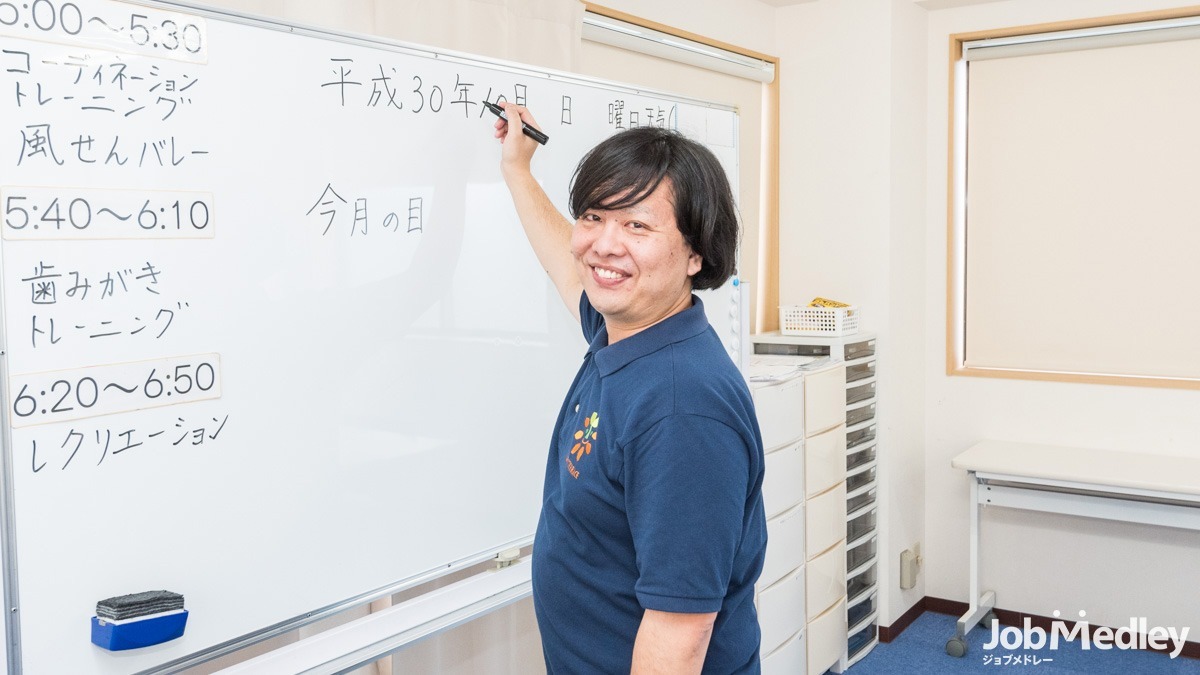 5:00〜5:30
コーディネーション
トレーニング
風せんバレー
5:40〜6:10
歯みがき
トレーニング
6:20〜6:50
レクリエーション
平成30年10月 日 曜日天気(
今月の目
JobMedley
ジョブメドレー